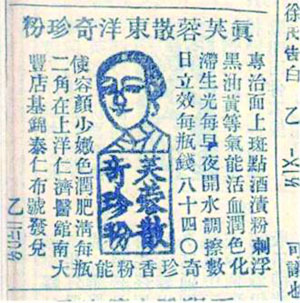 眞芙蓉散東洋奇珍粉
專治面上斑點酒瘢粉刺浮
黑油黃等氣能活血潤色化
滯生光每早夜開水調擦數
日立效每瓶錢八十四〇奇
珍香粉能
使容顏少嫩色潤肥淸每瓶
二角在上洋仁濟醫館南大
豐店基錦泰仁布號發兌
芙蓉散
奇珍粉
乙
告白
乙